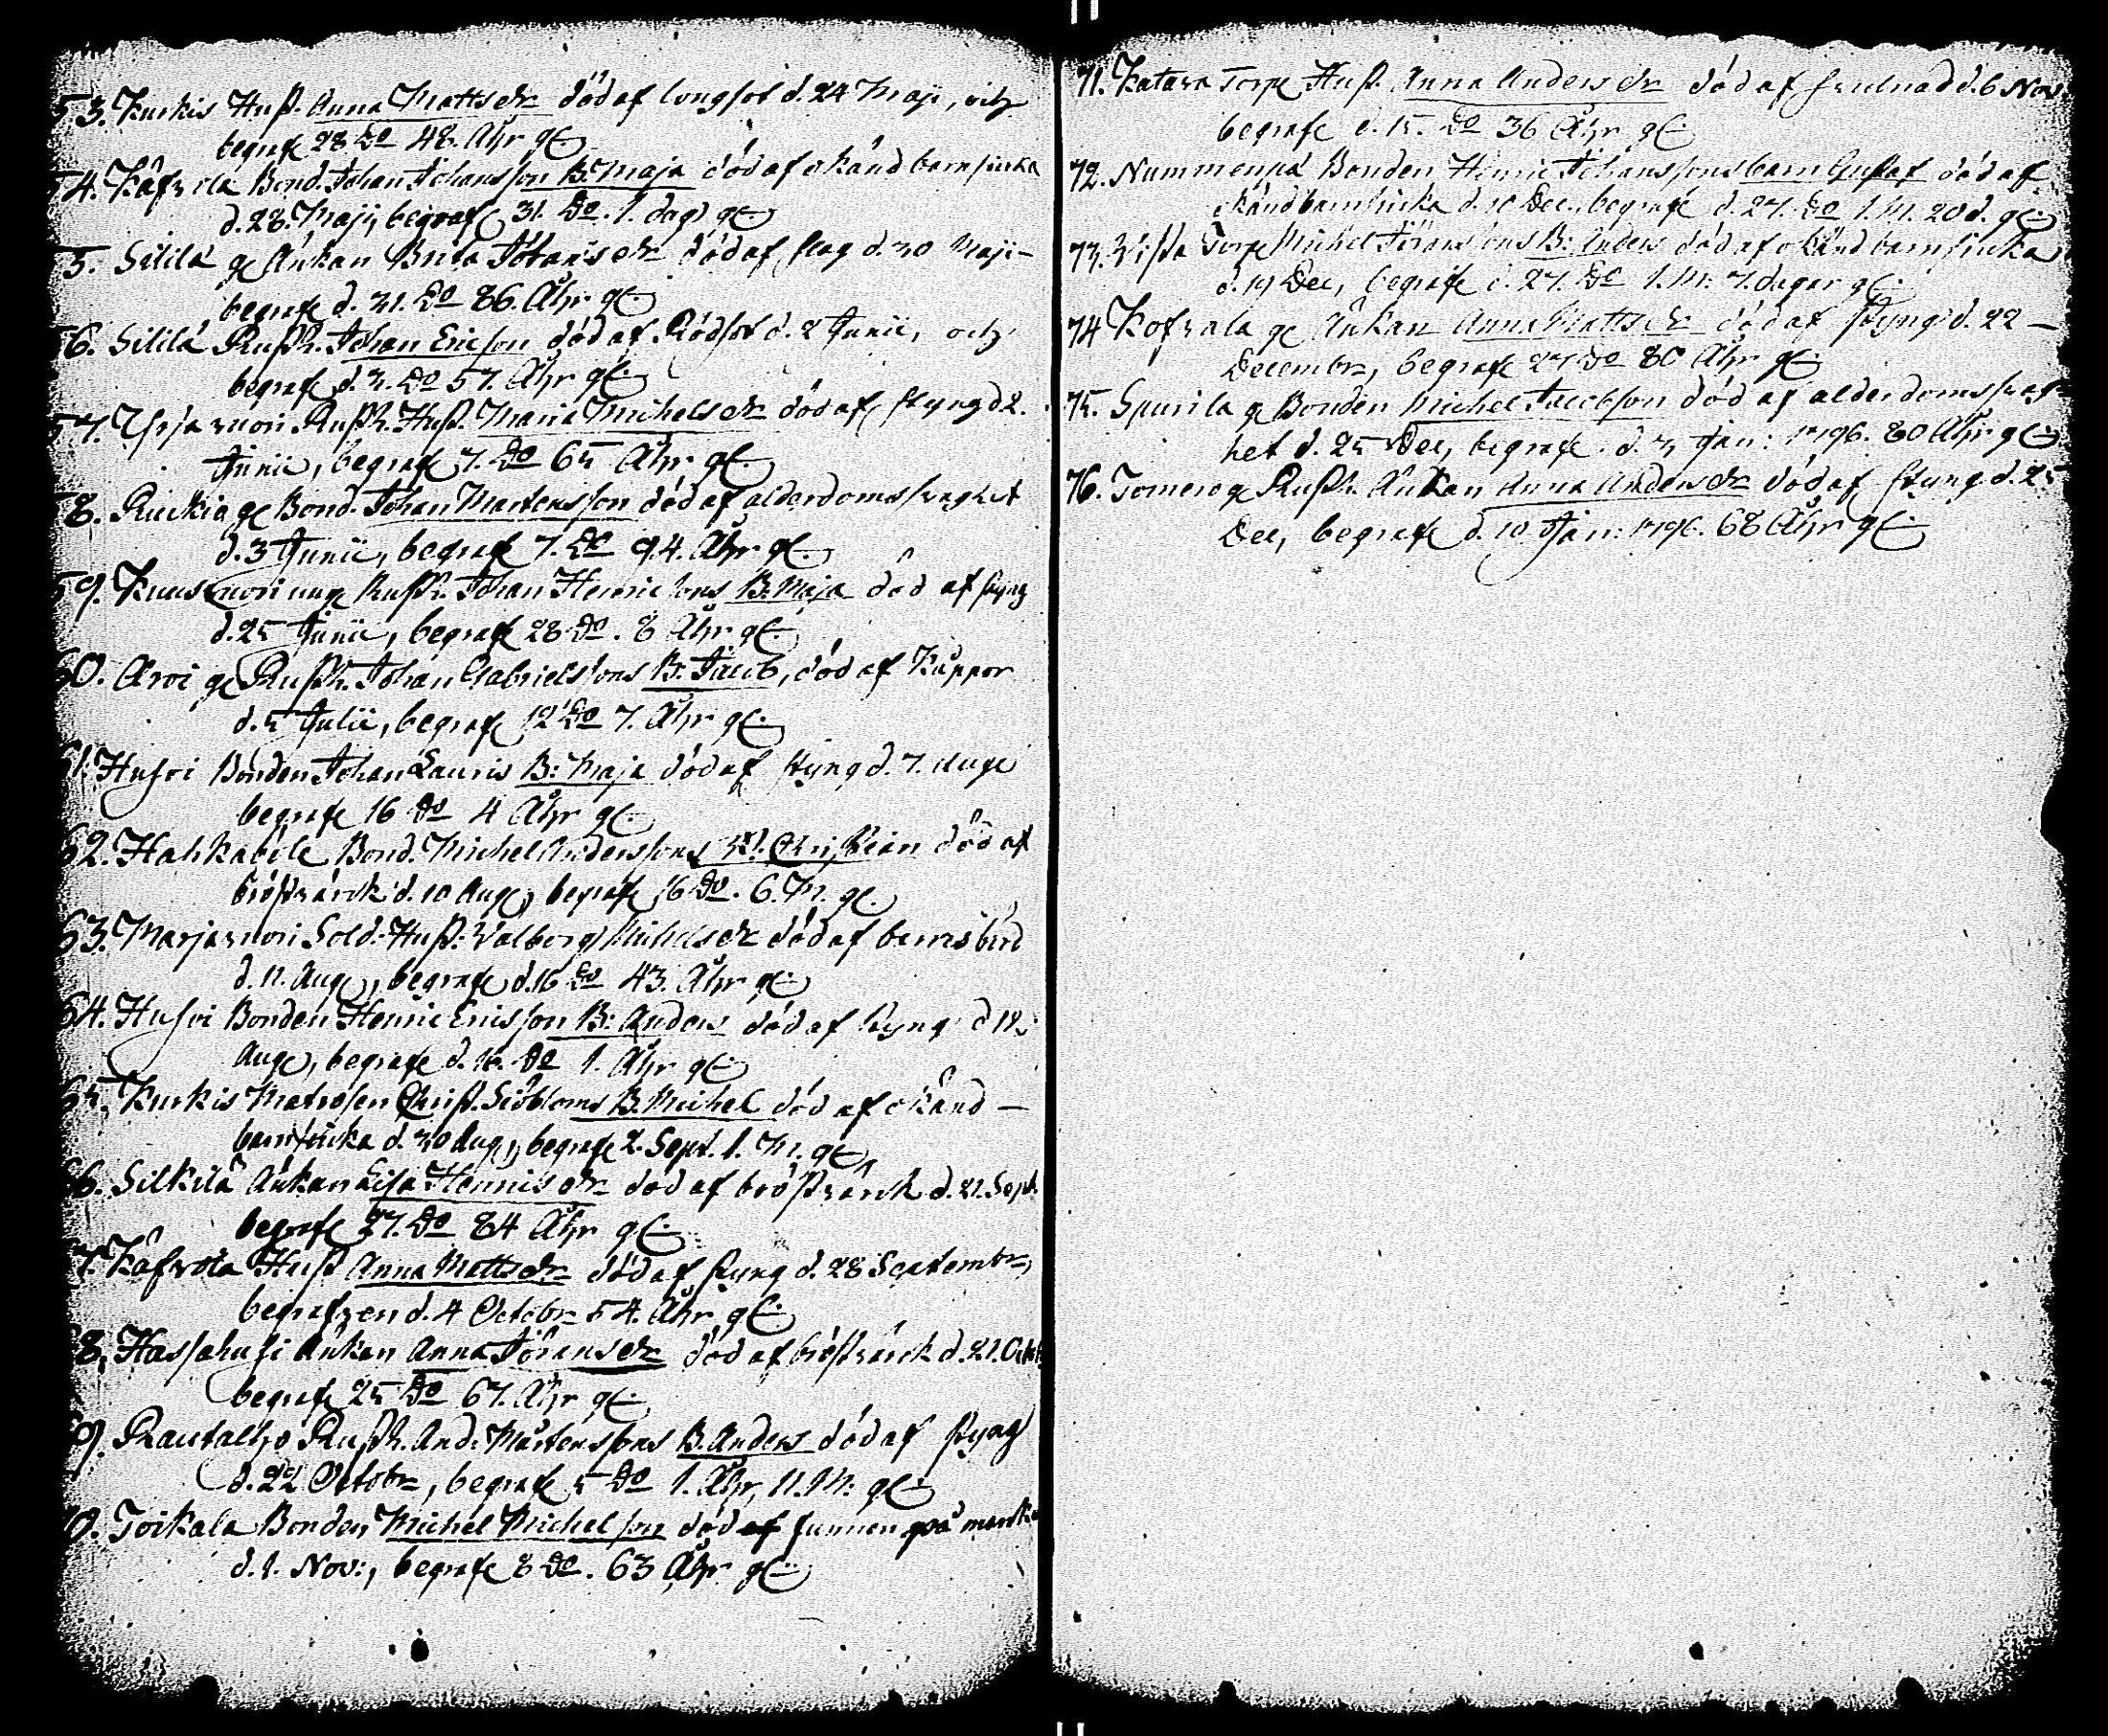 53. Kurkis Hust. Anna Mattsdr död af lungsot d. 24 Maji, och
begrafe 28 Do 48. Åhr gl.
54. Bond. Johan Johansson B. Maja död af okänd barnsiuka
d. 28. Maji, begrafe 31. Do. 1. dag gl.
5. Sillilä gl Änkan Brita Johansdr död af slag d. 30 Maji
begrafe d. 31. Do 86. Åhr gl.
56. Sillilä Rusth. Johan Ericson död af Rödsot d. 2 Junii, och
begrafe d. 3. Do 57. Åhr gl.
57. Yrjänuori Rusth. Hust. Maria Michelsdr död af styng d 2.
Junii, begrafe 7. Do 65 Åhr gl.
58. gl Bond. Johan Martensson död af alderdomsswaghet
d. 3 Junii, begrafe 7. Do 94. Åhr gl.
59. Rusth. Johan Henricsons B. Maja död af styng
d. 25 Junii, begrafe 28 Do. 8 Åhr gl.
60. Arvi gl Rusth. Johan Gabrielssons B. Jacob, död af Kåppor
d. 5 Julii, begrafe 12 Do 7. Åhr gl.
61. Husvi Bonden Johan Lauris B: Maja död af styng d. 7. Auge
begrafe 16 Do 4 Åhr gl.
62. Hahkabile Bond. Michel Anderssons Christian död af
bröstwärck d. 10 Auge, begrafe 16 Do. 6. M. gl.
63. Marjanuori Sold. Hust: Walborg Michelsdr död af barnsbörd
d. 11. Auge, begrafe d. 16 Do 43. Åhr gl.
64. Husvi Bonden Henric Ericsson B: Anders död af styng d 12
Auge, begrafe d. 16. Do 1. Åhr gl.
65. Kurkis Matrosen Christ. Siöbloms B. Michel död af okänd
barnsiuka d. 30 Aug, begrafe 2. Sept. 1. M. gl.
66. Silkilä Änkan Lisa Henricsdr död af bröstwärck d. 21. Sept.
begrafe 27. Do 84 Åhr gl.
67. Hust Anna Mattsdr död af styng d. 28 Septembr,
begrafwen d. 4 Octobr 54. Åhr gl.
68. Hassahusi Änkan Anna Jöransdr död af bröstwärck d. 21. Octob
begrafe 25 Do 67. Åhr gl.
69. Rautalho Rusth. And: Mårtenssons B. Anders död af styng
d. 22 Octobr, begrafe 5 Do 1. Åhr, 11. M: gl.
70. Toikala Bonden Michel Michelson död af funnen på marken
d. 1. Nov:, begrafe 8 Do. 63 Åhr gl.
71. Katava Torp. Hust. Anna Andersdr död af d. 6 Nov.
begrafe d. 15. Do 36 Åhr gl.
72. Nummenpä Bonden Henric Johanssons barn Gustaf död af
okänd barnsiuka d. 10 Dec., begrafe d. 27. Do 1. M. 20 d. gl.
73. Wista Torp Michel Jöranssons B: Anders död af okänd barnsiuka
d. 19 Dec, begrafe d. 27. Do 1. M: 7. dagar gl.
74 Kofvala gl Änkan Anna Mattsdr död af styng d. 22
Decembr, begrafe 27 Do 80 Åhr gl.
75. Spurila gl Bonden Michel Jacobson död af alderdomsswag-
het d. 25 Dec, begrafe d. 3 Jan: 1796. 80 Åhr gl.
76. Tomero gl Rusth. Änkan Anna Andersdr död af styng d. 25
Dec, begrafe d. 10 Jan: 1796. 68 Åhr gl.